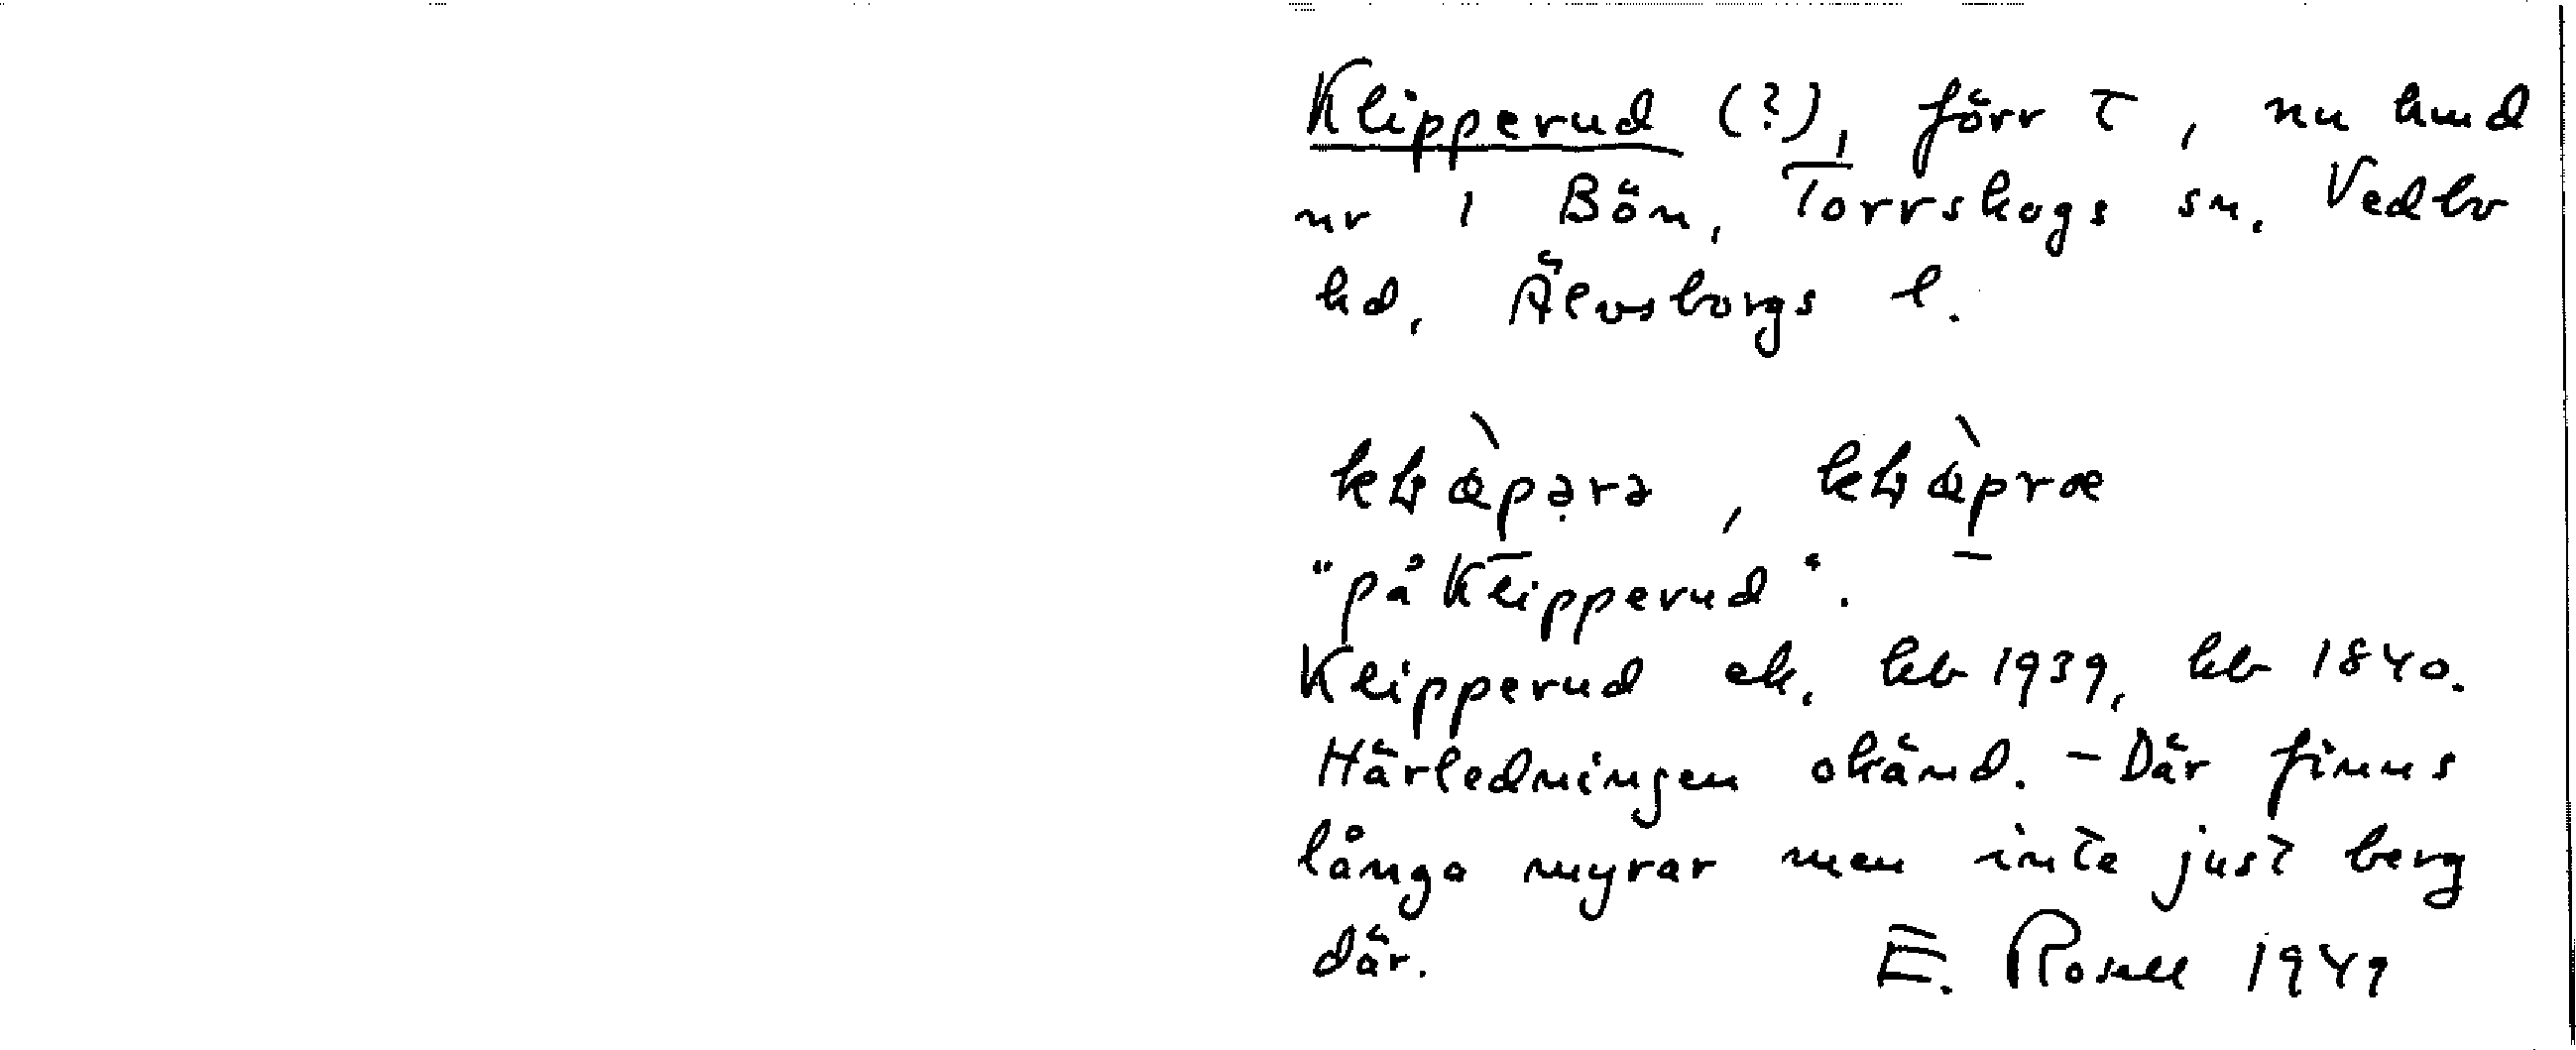 Klipperud (?), förr t, nu hmd
nr 1 Bön, Torrskogs sn, Vedbo
hd, Älvsborgs l.
"på Klipperud".
Klipperud ek. kb 1939, kb 1840.
Härledningen okänd. – Där finns
långa myrar men inte just berg
där. E. Rosell 1949